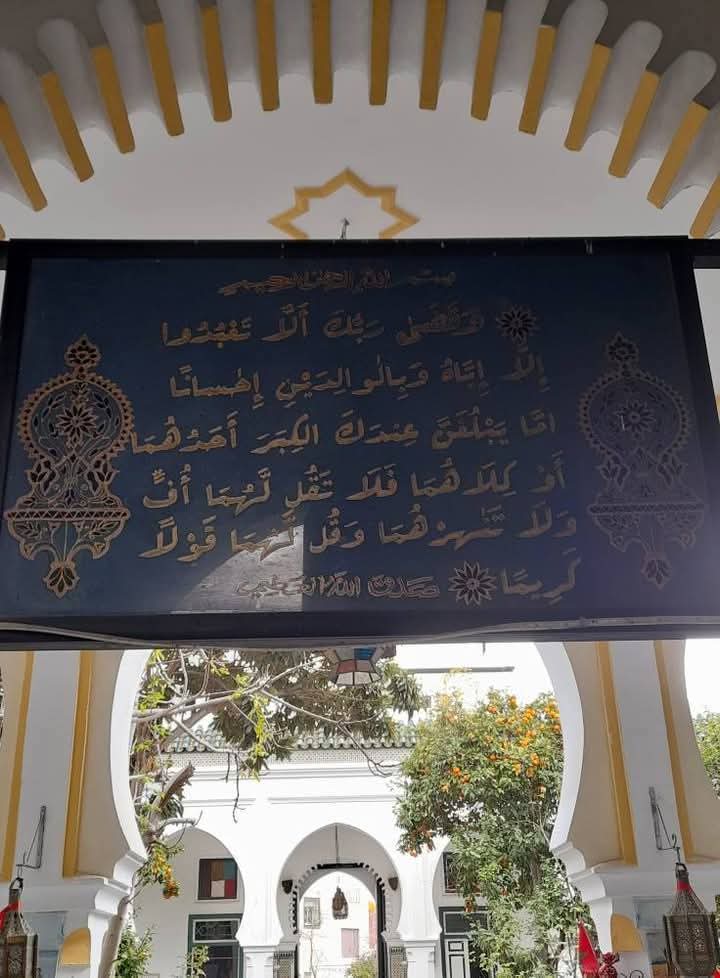 بسم الله الرحمن الرحيم
وَقَضَى رَبُّكَ أَلَّا تَعْبُدُوا
إِلَّا إِيَّاهُ وَبِالْوَالِدَيْنِ إِحْسَانًا
امَّا يَبْلُغَنَّ عِندَكَ الْكِبَرَ أَحَدُهُمَا
أَوْ كِلَاهُمَا فَلَا تَقُل لَّهُمَا أُفٍّ
وَلَا تَنْهَرْهُمَا وَقُل لَّهُمَا قَوْلًا
كَرِيمًا صدق الله العظيم